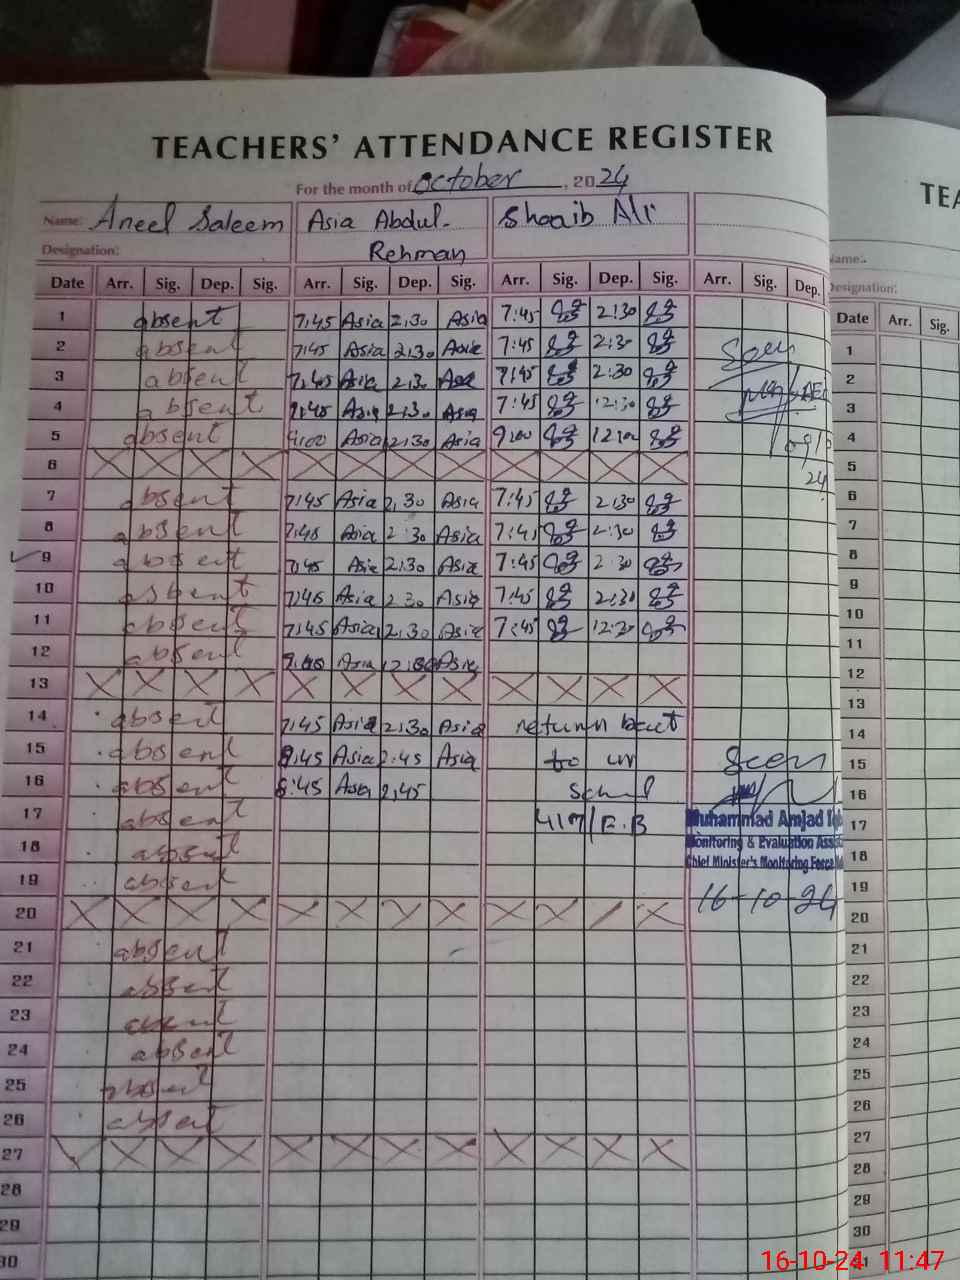 TEACHERS' ATTENDANCE REGISTER
For the month of October, 2024
Name: Aneel Saleem Asia Abdul- Shoaib Ali
Designation: Rehman
Date Arr. Sig. Dep. Sig. Arr. Sig. Dep. Sig. Arr. Sig. Dep. Sig. Arr. Sig. Dep.
1 absent 7:45 Asia 2:30 Asia 7:45 2:30
2 absent 7:45 Asia 2:30 Asia 7:45 2:30 Seen
3 absent 7:45 Asia 2:30 Asia 7:45 2:30
4 absent 7:45 Asia 2:30 Asia 7:45 12:30
5 absent Asia 2:30 Asia 9:00
6 X X X X X X X X X X X X
7 absent 7:45 Asia 2:30 Asia 7:45 2:30
8 absent 7:45 Asia 2:30 Asia 7:45 2:30
9 absent 7:45 Asia 2:30 Asia 7:45 2:30
10 absent 7:45 Asia 2:30 Asia 7:45 2:30
11 absent 7:45 Asia 2:30 Asia 7:45
12 absent Asia Asia
13 X X X X X X X X X X X X
14 absent 7:45 Asia 2:30 Asia return back
15 absent Asia 2:45 Asia to Seen
16 absent 8:45 Asia 2:45
17 absent 417/E.B Muhammad Amjad
18 absent Monitoring & Evaluation
19 absent Chief Minister's Monitoring Force
16-10-24
20 X X X X X X X X X X X
21 absent
22 absent
23 absent
24 absent
25 absent
26 absent
27 X X X X X X X X X X X X
28
29
30
TEA
Name:
Designation:
Date Arr. Sig.
1
2
3
4
5
6
7
8
9
10
11
12
13
14
15
16
17
18
19
20
21
22
23
24
25
26
27
28
29
30
16-10-24 11:47